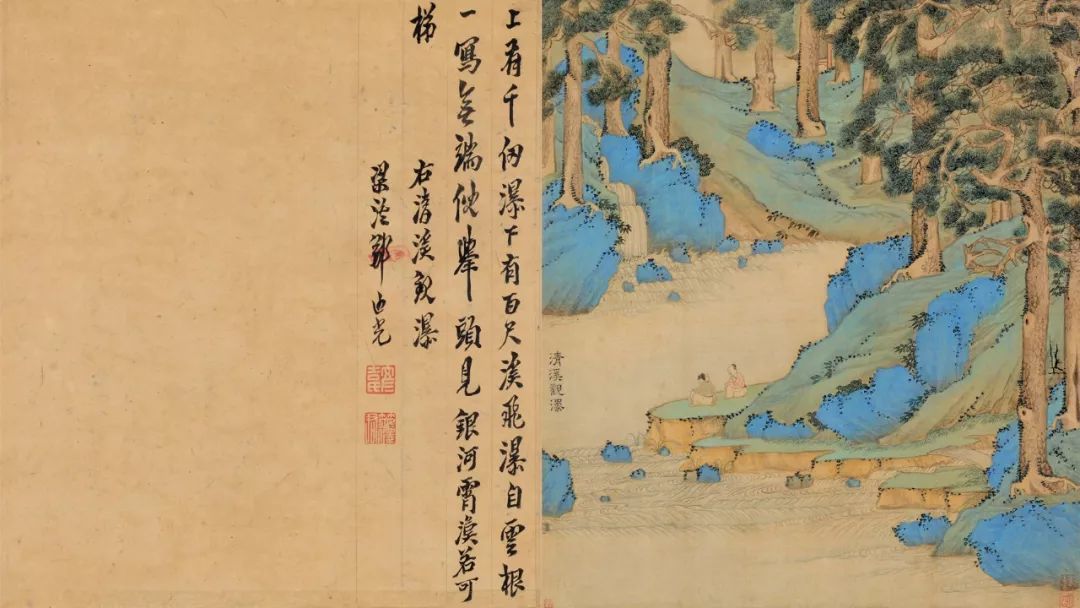 清溪觀瀑
上有千仞瀑下有百尺溪飛瀑自雲根
一寫無端倪舉頭見銀河霄漢若可
梯
右清溪觀瀑
梁溪鄒迪光